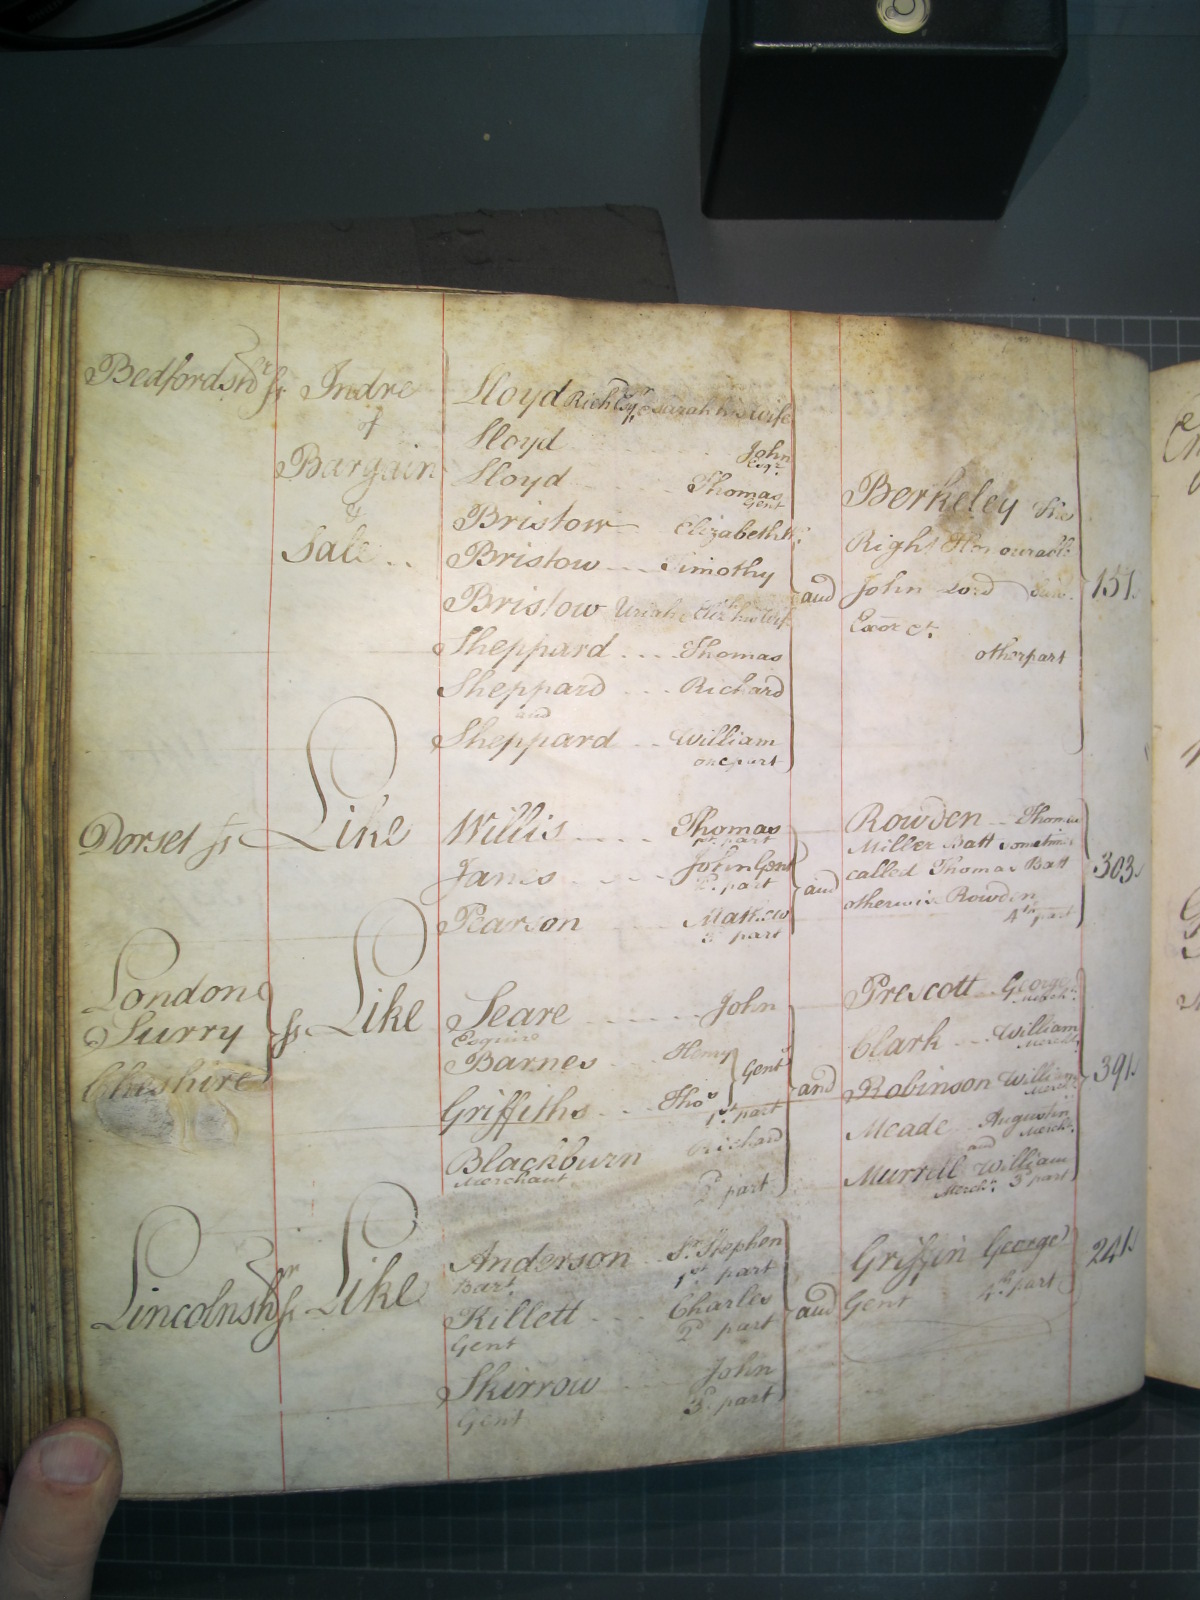 Bedfordshr ss Indre of Bargain & Sale ..
Lloyd Richd Esqr & Sarah his wife
Lloyd John Esqr
Lloyd Thomas Gent
Bristow Elizabeth
Bristow Timothy
Bristow Uriah & Elizth his Wife
Sheppard ... Thomas
Sheppard ... Richard
and
Sheppard .. William
one part
and
Berkeley The
Right Honourable
John Lord
Exor &c
other part
151
Dorset ss Like
Willis Thomas
1st part
James John Gent
2d part
Pearson Mathew
3d part
and
Rowden Thomas
Miller Batt sometimes
called Thomas Batt
otherwise Rowden
4th part
303
London
Surry
Cheshire
ss Like
Seare John
Esquire
Barnes Henry
Griffiths Thos
Gents
1st part
Blackburn Richard
Merchant
2d part
and
Prescott George
Mercht
Clark William
Mercht
Robinson William
Mercht
Meade Augustin
and Mercht
Murrell William
Mercht 3d part
391
Lincolnshr ss Like
Anderson Sr Stephen
Bart 1st part
Killett Charles
Gent 2d part
Skirrow John
Gent 3d part
and
Griffin George
Gent 4th part
241